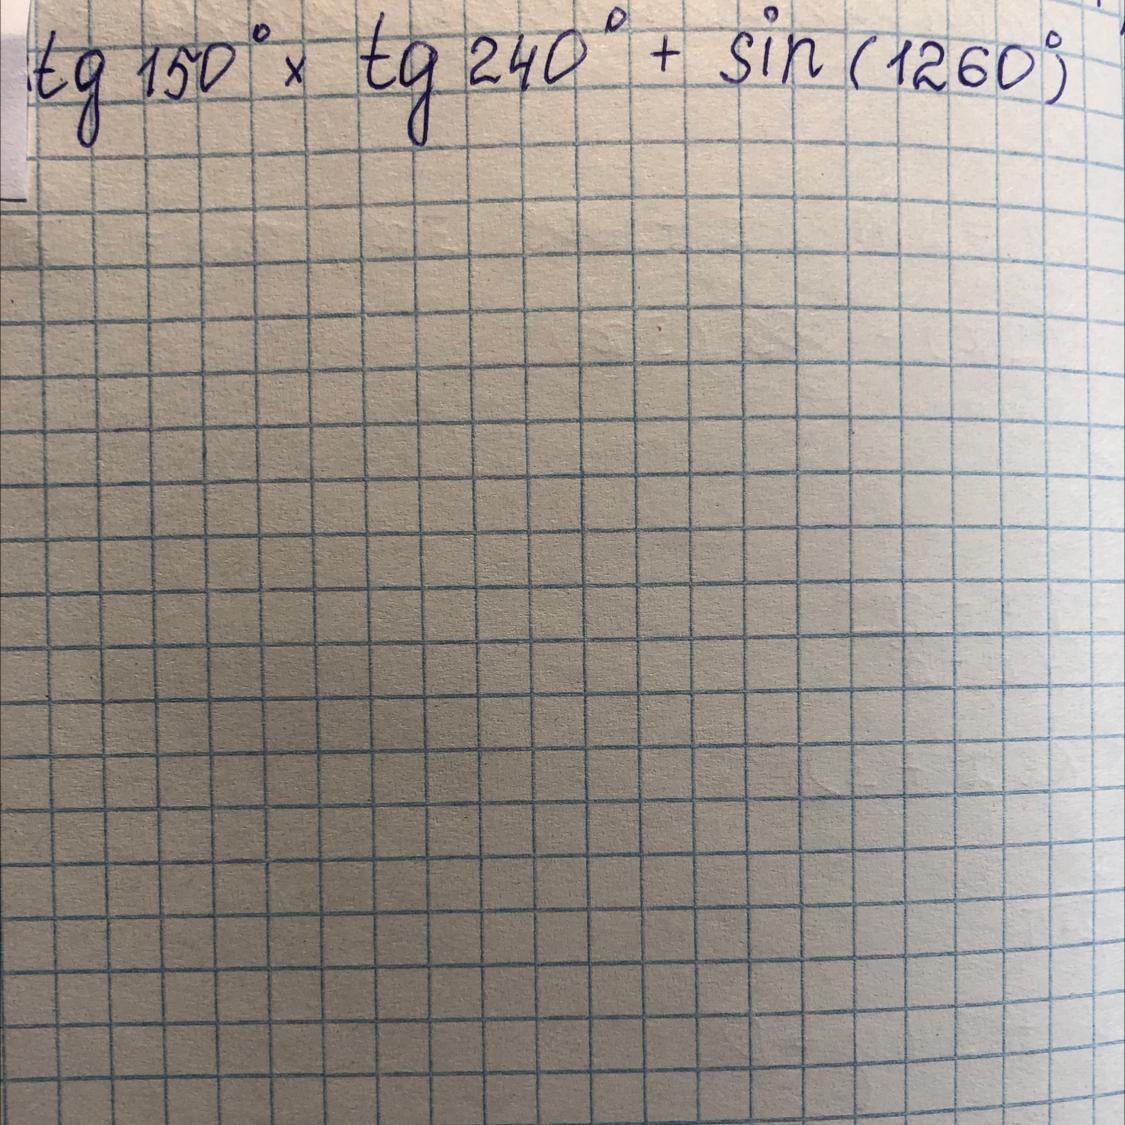 tg 150° × tg 240° + sin (1260°)